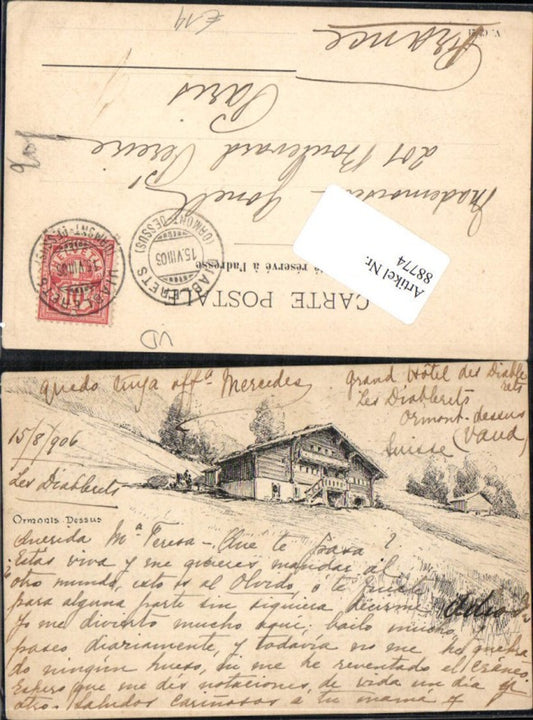 £14
V. O. 21
France
Paris
201 Boulevard
Mademoiselle
côté réservé à l'adresse
CARTE POSTALE
Artikel Nr.
88774
DIABLERETS
(ORMONT-DESSUS)
15.VIII.06
HELVETIA
10
quedo tuya affª Mercedes
Grand Hôtel des Diablerets
Les Diablerets
Ormont-dessus
(Vaud)
Suisse
15/8/906
Les Diablerets
Ormonts Dessus
Querida Mª Teresa - Qué te pasa?
Estás viva y me quieres mandar al
otro mundo, esto es al Olvido, ó te fuiste
para alguna parte sin siquiera decirme Adios
Yo me divierto mucho aquí; bailo mucho,
paseo diariamente, y todavía no me he quebra
do ningún hueso, ni me he reventado el Cráneo.
Espero que me dés notaciones, de vida un día ú
otro. Saludos cariñosos a tu mamá y